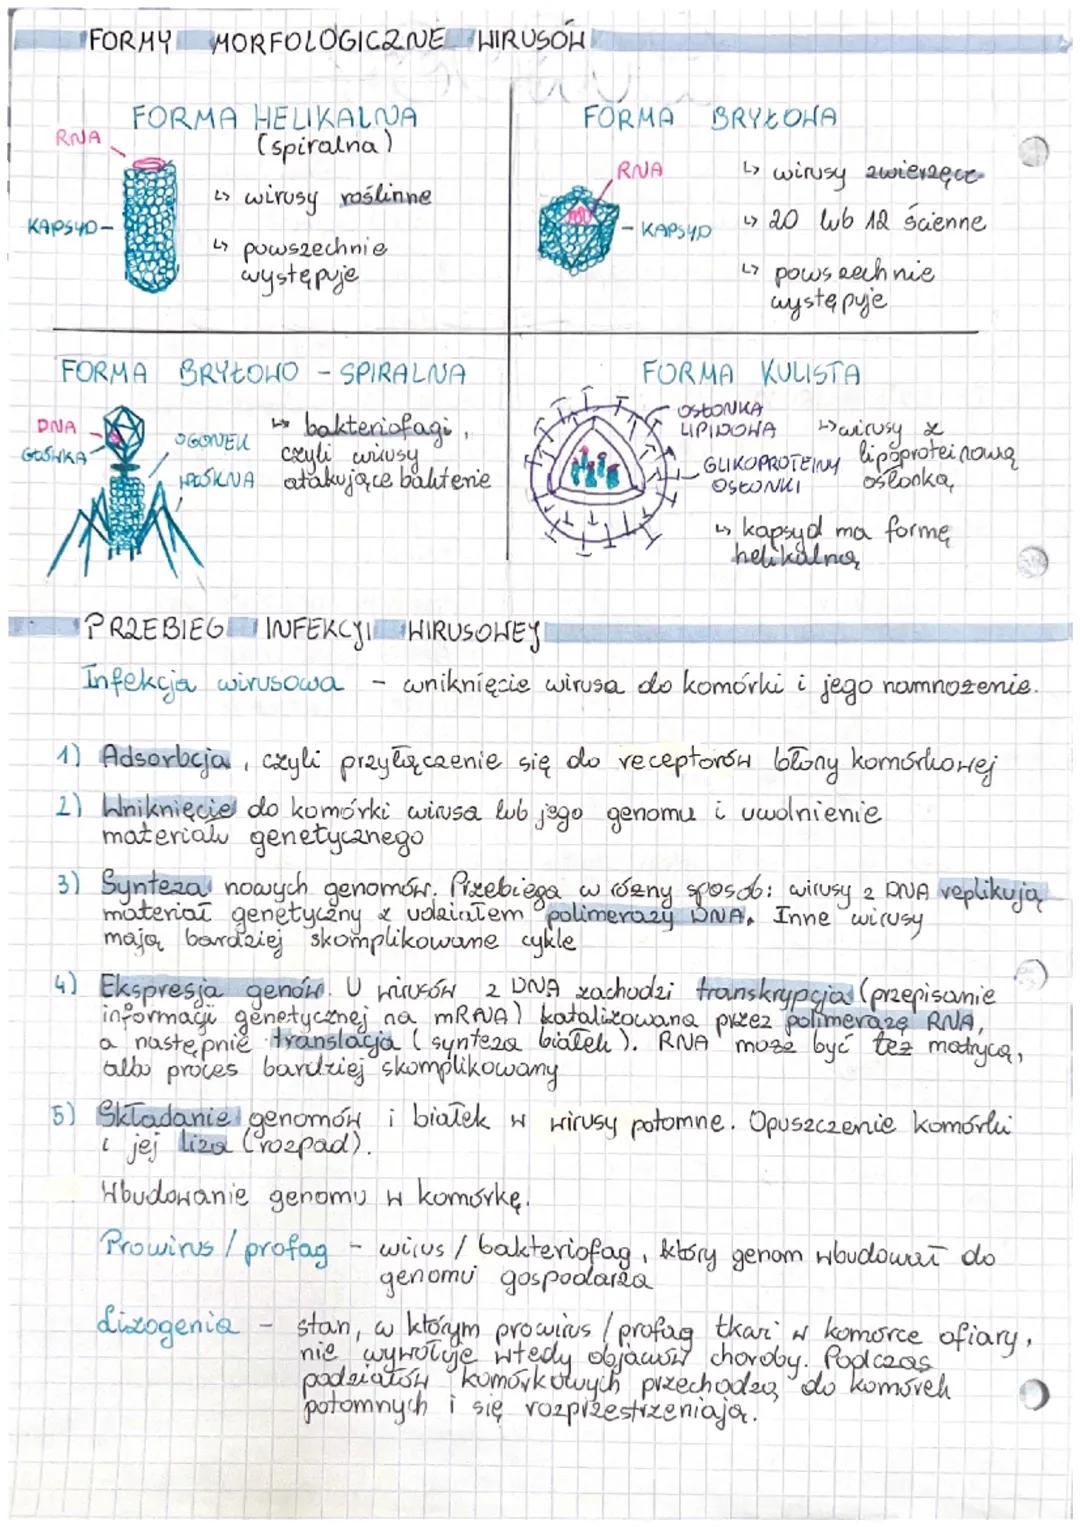 FORMY MORFOLOGICZNE WIRUSÓW
FORMA HELIKALNA
(spiralna)
RNA
KAPSYD
↳ wirusy roślinne
↳ powszechnie
występuje
FORMA BRYŁOWA
RNA
KAPSYD
↳ wirusy zwierzęce
↳ 20 lub 12 ścienne
↳ powszechnie
występuje
FORMA BRYŁOWO - SPIRALNA
DNA
GŁÓWKA
OGONEK
WŁÓKNA
↳ bakteriofagi,
czyli wirusy
atakujące bakterie
FORMA KULISTA
OSŁONKA
LIPIDOWA
GLIKOPROTEINY
OSŁONKI
↳ wirusy z
lipoproteinową
osłonką
↳ kapsyd ma formę
helikalną
PRZEBIEG INFEKCJI WIRUSOWEJ
Infekcja wirusowa - wniknięcie wirusa do komórki i jego namnożenie.
1) Adsorbcja, czyli przyłączenie się do receptorów błony komórkowej
2) Wniknięcie do komórki wirusa lub jego genomu i uwolnienie
materiału genetycznego
3) Synteza nowych genomów. Przebiega w różny sposób: wirusy z DNA replikują
materiał genetyczny z udziałem polimerazy DNA. Inne wirusy
mają bardziej skomplikowane cykle
4) Ekspresja genów. U wirusów z DNA zachodzi transkrypcja (przepisanie
informacji genetycznej na mRNA) katalizowana przez polimerazę RNA,
a następnie translacja (synteza białek). RNA może być też matrycą,
albo proces bardziej skomplikowany
5) Składanie genomów i białek w wirusy potomne. Opuszczenie komórki
i jej liza (rozpad).
Wbudowanie genomu w komórkę.
Prowirus / profag - wirus / bakteriofag, który genom wbudował do
genomu gospodarza
Lizogenia - stan, w którym prowirus / profag tkwi w komórce ofiary,
nie wywołuje wtedy objawów choroby. Podczas
podziałów komórkowych przechodzą do komórek
potomnych i się rozprzestrzeniają.